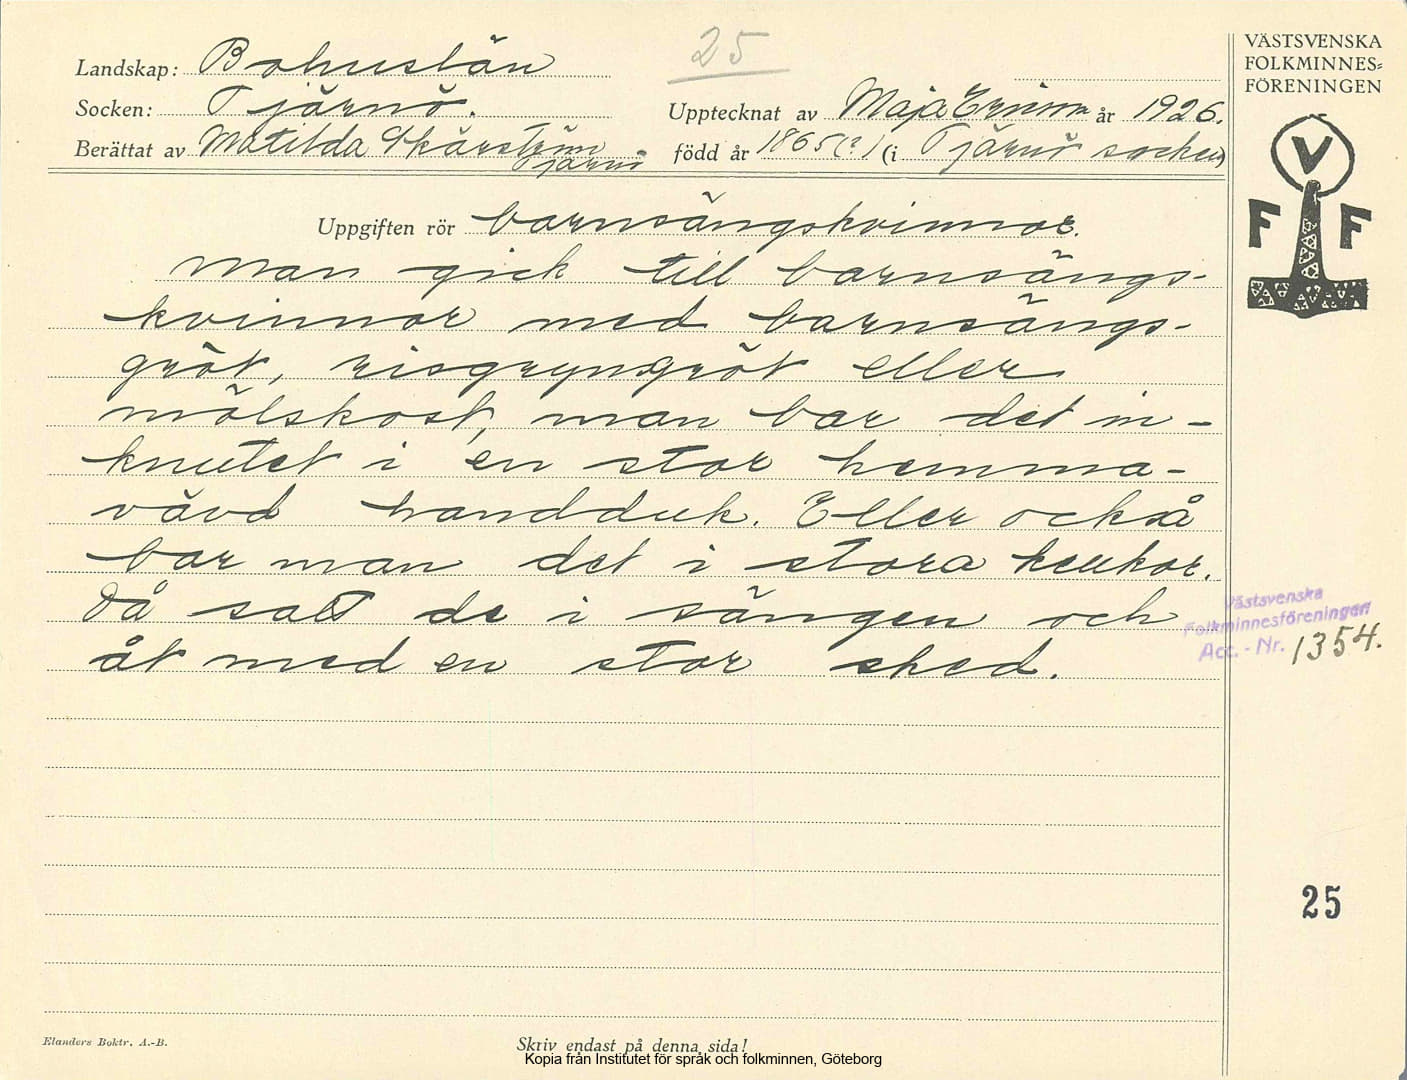 25
Landskap: Bohuslän
Socken: Tjärnö.
Upptecknat av Maja Ericson år 1926.
Berättat av Matilda Skärström
Tjärnö
född år 1865(?) (i Tjärnö socken)
VÄSTSVENSKA
FOLKMINNES=
FÖRENINGEN
V
F F
Uppgiften rör barnsängskvinnor.
Man gick till barnsängs-
kvinnor med barnsängs-
gröt, risgrynsgröt eller
mölskost, man bar det in-
knutet i en stor hemma-
vävd handduk. Eller också
bar man det i stora krukor.
Då satt de i sängen och
åt med en stor sked.
Västsvenska
Folkminnesföreningen
Acc. - Nr. 1354.
25
Elanders Boktr. A.-B.
Skriv endast på denna sida!
Kopia från Institutet för språk och folkminnen, Göteborg